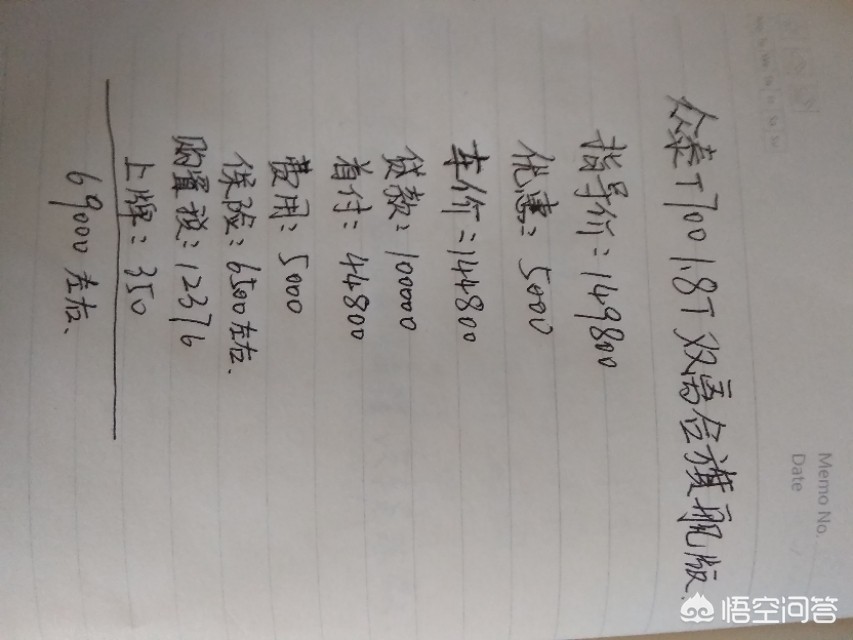 Memo No.
Date
众泰T700 1.8T双离合旗舰版.
指导价:149800
优惠:5000
车价:144800
贷款:100000
首付:44800
费用:5000
保险:6500左右.
购置税:12376
上牌:350
69000左右.
悟空问答